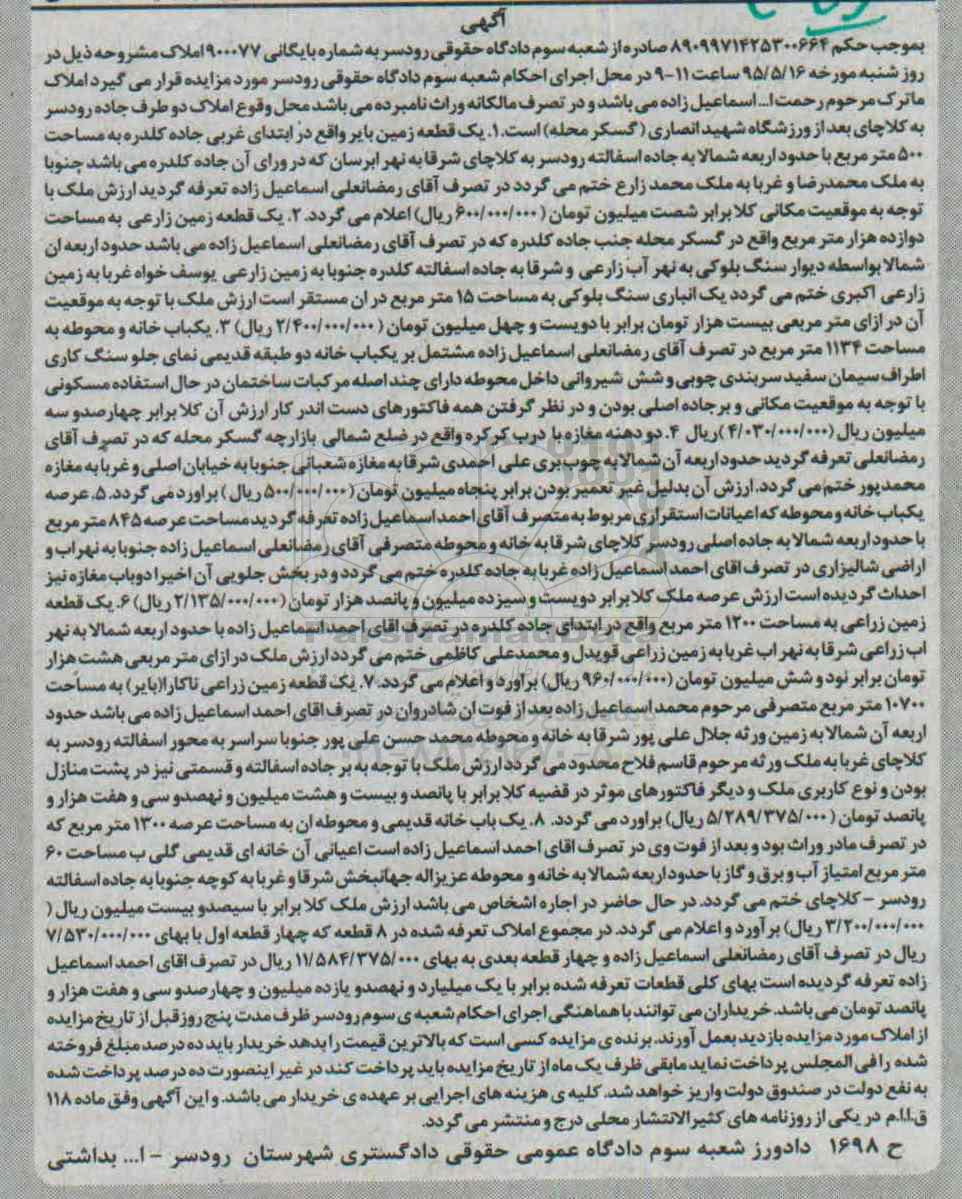 آگهی
بموجب حکم ۸۹۰۹۹۷۱۴۲۵۳۰۰۶۶۴ صادره از شعبه سوم دادگاه حقوقی رودسر به شماره بایگانی ۹۰۰۰۷۷ املاک مشروحه ذیل در
روز شنبه مورخه ۹۵/۵/۱۶ ساعت ۱۱-۹ در محل اجرای احکام شعبه سوم دادگاه حقوقی رودسر مورد مزایده قرار می گیرد املاک
ماترک مرحوم رحمت ا... اسماعیل زاده می باشد و در تصرف مالکانه وراث نامبرده می باشد محل وقوع املاک دو طرف جاده رودسر
به کلاچای بعد از ورزشگاه شهید انصاری (گسکر محله) است.۱. یک قطعه زمین بایر واقع در ابتدای غربی جاده کلدره به مساحت
۵۰۰ متر مربع با حدود اربعه شمالا به جاده اسفالته رودسر به کلاچای شرقا به نهر ابرسان که در ورای آن جاده کلدره می باشد جنوبا
به ملک محمدرضا و غربا به ملک محمد زارع ختم می گردد در تصرف آقای رمضانعلی اسماعیل زاده تعرفه گردید ارزش ملک با
توجه به موقعیت مکانی کلا برابر شصت میلیون تومان (۶۰۰/۰۰۰/۰۰۰ ریال) اعلام می گردد. ۲. یک قطعه زمین زارعی به مساحت
دوازده هزار متر مربع واقع در گسکر محله جنب جاده کلدره که در تصرف آقای رمضانعلی اسماعیل زاده می باشد حدود اربعه ان
شمالا بواسطه دیوار سنگ بلوکی به نهر آب زارعی و شرقا به جاده اسفالته کلدره جنوبا به زمین زارعی یوسف خواه غربا به زمین
زارعی اکبری ختم می گردد یک انباری سنگ بلوکی به مساحت ۱۵ متر مربع در ان مستقر است ارزش ملک با توجه به موقعیت
آن در ازای متر مربعی بیست هزار تومان برابر با دویست و چهل میلیون تومان (۲/۴۰۰/۰۰۰/۰۰۰ ریال) ۳. یکباب خانه و محوطه به
مساحت ۱۱۳۴ متر مربع در تصرف آقای رمضانعلی اسماعیل زاده مشتمل بر یکباب خانه دو طبقه قدیمی نمای جلو سنگ کاری
اطراف سیمان سفید سربندی چوبی و شش شیروانی داخل محوطه دارای چند اصله مرکبات ساختمان در حال استفاده مسکونی
با توجه به موقعیت مکانی و بر جاده اصلی بودن و در نظر گرفتن همه فاکتورهای دست اندر کار ارزش آن کلا برابر چهارصدو سه
میلیون ریال (۴/۰۳۰/۰۰۰/۰۰۰)ریال ۴. دو دهنه مغازه با درب کرکره واقع در ضلع شمالی بازارچه گسکر محله که در تصرف آقای
رمضانعلی تعرفه گردید حدود اربعه آن شمالا به چوب بری علی احمدی شرقا به مغازه شعبانی جنوبا به خیابان اصلی و غربا به مغازه
محمدپور ختم می گردد. ارزش آن بدلیل غیر تعمیر بودن برابر پنجاه میلیون تومان (۵۰۰/۰۰۰/۰۰۰ ریال) براورد می گردد. ۵. عرصه
یکباب خانه و محوطه که اعیانات استقراری مربوط به متصرف آقای احمد اسماعیل زاده تعرفه گردید مساحت عرصه ۸۴۵ متر مربع
با حدود اربعه شمالا به جاده اصلی رودسر کلاچای شرقا به خانه و محوطه متصرفی آقای رمضانعلی اسماعیل زاده جنوبا به نهر اب و
اراضی شالیزاری در تصرف اقای احمد اسماعیل زاده غربا به جاده کلدره ختم می گردد و در بخش جلویی آن اخیرا دوباب مغازه نیز
احداث گردیده است ارزش عرصه ملک کلا برابر دویست و سیزده میلیون و پانصد هزار تومان (۲/۱۳۵/۰۰۰/۰۰۰ ریال) ۶. یک قطعه
زمین زراعی به مساحت ۱۲۰۰ متر مربع واقع در ابتدای جاده کلدره در تصرف اقای احمد اسماعیل زاده با حدود اربعه شمالا به نهر
اب زراعی شرقا به نهر اب غربا به زمین زراعی قویدل و محمدعلی کاظمی ختم می گردد ارزش ملک در ازای متر مربعی هشت هزار
تومان برابر نود و شش میلیون تومان (۹۶۰/۰۰۰/۰۰۰ ریال) براورد و اعلام می گردد. ۷. یک قطعه زمین زراعی ناکارا(بایر) به مساحت
۱۰۷۰۰ متر مربع متصرفی مرحوم محمد اسماعیل زاده بعد از فوت ان شادروان در تصرف اقای احمد اسماعیل زاده می باشد حدود
اربعه آن شمالا به زمین ورثه جلال علی پور شرقا به خانه و محوطه محمد حسن علی پور جنوبا سراسر به محور اسفالته رودسر به
کلاچای غربا به ملک ورثه مرحوم قاسم فلاح محدود می گردد ارزش ملک با توجه به بر جاده اسفالته و قسمتی نیز در پشت منازل
بودن و نوع کاربری ملک و دیگر فاکتورهای موثر در قضیه کلا برابر با پانصد و بیست و هشت میلیون و نهصدو سی و هفت هزار و
پانصد تومان (۵/۲۸۹/۳۷۵/۰۰۰ ریال) براورد می گردد. ۸. یک باب خانه قدیمی و محوطه ان به مساحت عرصه ۱۳۰۰ متر مربع که
در تصرف مادر وراث بود و بعد از فوت وی در تصرف اقای احمد اسماعیل زاده است اعیانی آن خانه ای قدیمی گلی ب مساحت ۶۰
متر مربع امتیاز آب و برق و گاز با حدود اربعه شمالا به خانه و محوطه عزیزاله جهانبخش شرقا و غربا به کوچه جنوبا به جاده اسفالته
رودسر - کلاچای ختم می گردد. در حال حاضر در اجاره اشخاص می باشد ارزش ملک کلا برابر با سیصدو بیست میلیون ریال (
۳/۲۰۰/۰۰۰/۰۰۰ ریال) برآورد و اعلام می گردد. در مجموع املاک تعرفه شده در ۸ قطعه که چهار قطعه اول با بهای ۷/۵۳۰/۰۰۰/۰۰۰
ریال در تصرف آقای رمضانعلی اسماعیل زاده و چهار قطعه بعدی به بهای ۱۱/۵۸۴/۳۷۵/۰۰۰ ریال در تصرف اقای احمد اسماعیل
زاده تعرفه گردیده است بهای کلی قطعات تعرفه شده برابر با یک میلیارد و نهصدو یازده میلیون و چهارصدو سی و هفت هزار و
پانصد تومان می باشد. خریداران می توانند با هماهنگی اجرای احکام شعبه ی سوم رودسر ظرف مدت پنج روز قبل از تاریخ مزایده
از املاک مورد مزایده بازدید بعمل آورند. برنده ی مزایده کسی است که بالاترین قیمت را بدهد خریدار باید ده درصد مبلغ فروخته
شده را فی المجلس پرداخت نماید مابقی ظرف یک ماه از تاریخ مزایده باید پرداخت کند در غیر اینصورت ده درصد پرداخت شده
به نفع دولت در صندوق دولت واریز خواهد شد. کلیه ی هزینه های اجرایی بر عهده ی خریدار می باشد. و این آگهی وفق ماده ۱۱۸
ق.ا.ا.م در یکی از روزنامه های کثیر الانتشار محلی درج و منتشر می گردد.
ح ۱۶۹۸ دادورز شعبه سوم دادگاه عمومی حقوقی دادگستری شهرستان رودسر - ا... بداشتی